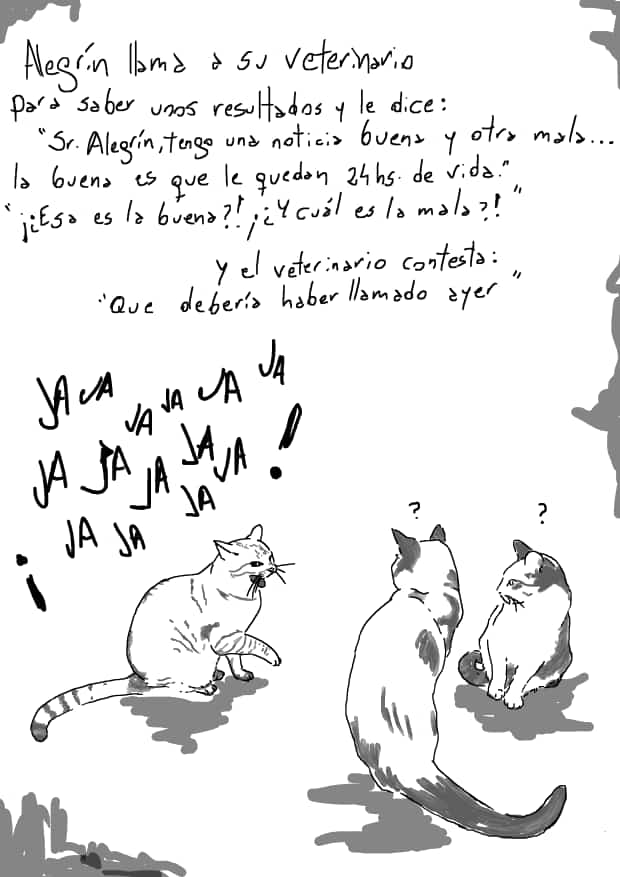 Alegrín llama a su veterinario
para saber unos resultados y le dice:
"Sr. Alegrín, tengo una noticia buena y otra mala...
la buena es que le quedan 24hs. de vida."
"¡¿Esa es la buena?! ¡¿Y cuál es la mala?!"
Y el veterinario contesta:
"Que debería haber llamado ayer"
JA JA JA JA JA JA
JA JA JA JA JA !
¡ JA JA JA
? ?